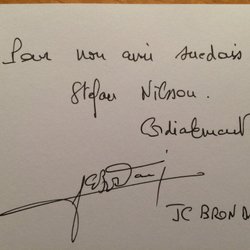 Pour mon ami suedois
Stefan Nilsson.
Cordialement
JC BROND